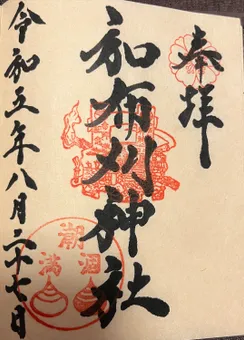 奉拝
和布刈神社
令和五年八月二十七日
満潮
涸